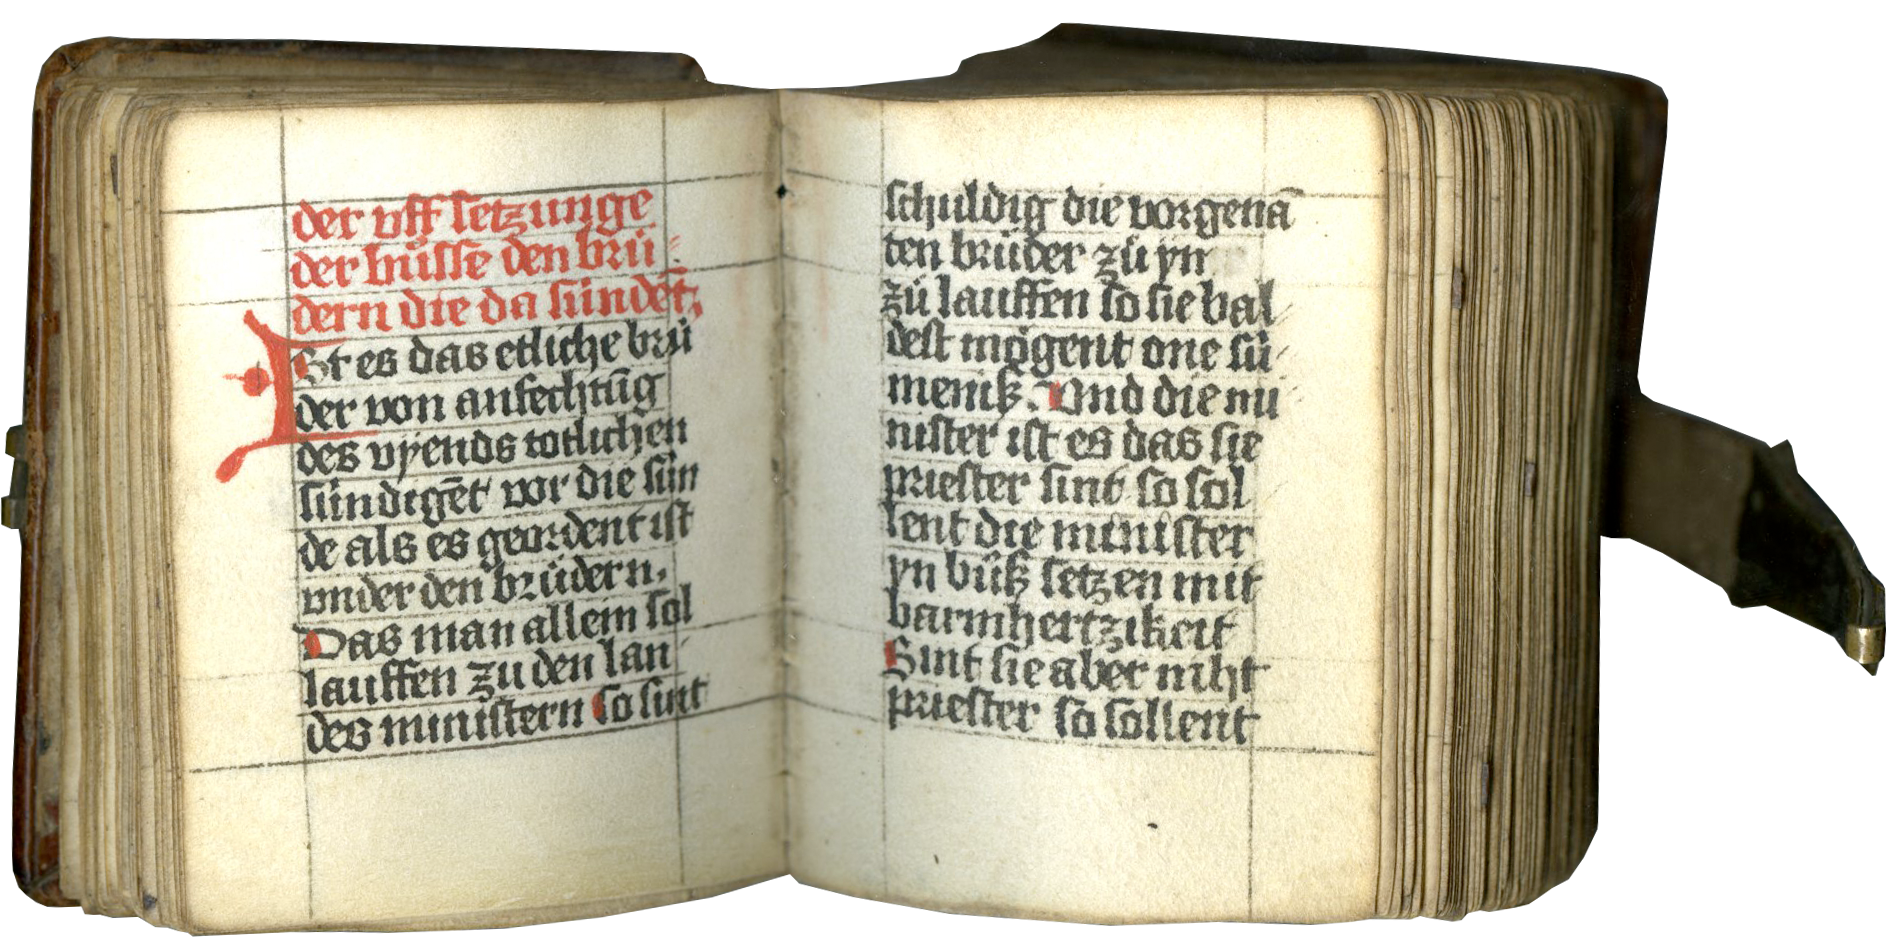 der vff setzunge
der bůsse den brů⸗
dern die da sündēt,
ISt es das etliche brů
der von anfechtūg
des vyends totlichen
sündigēt vor die sün
de als es geordent ist
vnder den brüdern,
Das man allein sol
lauffen zu den lan
des ministern so sint
schuldig die vorgenā
ten brüder zů yn
zů lauffen so sie bal⸗
dest mögent one sů⸗
meniß. Vnd die mi⸗
nister ist es das sie
priester sint so sol
lent die minister
yn bůß setzen mit
barmhertzikeit
Sint sie aber niht
priester so sollent